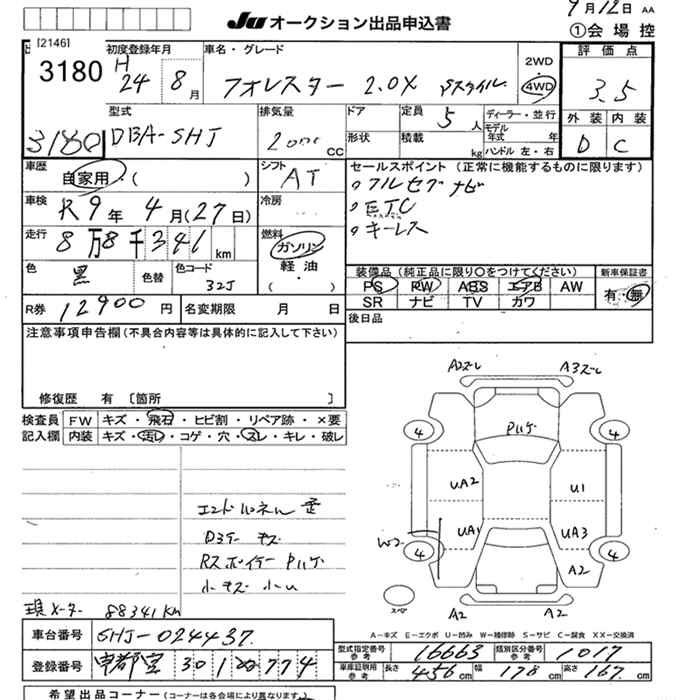 JU オークション出品申込書
9月12日 AA
①会場控
[2146]
3180
初度登録年月
H 24 8月
車名・グレード
フォレスター 2.0X
2WD
4WD
評価点
3.5
3180
型式
DBA-SHJ
排気量
2000 CC
ドア
形状
定員 5人
積載 kg
ディーラー・並行
モデル年式 年
ハンドル 左・右
外装 内装
D C
車歴
自家用・( )
シフト
AT
セールスポイント (正常に機能するものに限ります)
フルセグナビ
ETC
キーレス
車検
R9年4月(27日)
冷房
走行
8万8千341km
燃料
ガソリン
軽油
色
黒
色替
色コード
32J
装備品 (純正品に限り〇をつけてください)
新車保証書
PS PW ABS エアB AW
SR ナビ TV カワ
有・無
R券 12900円
名変期限 月 日
後日品
注意事項申告欄(不具合内容等は具体的に記入して下さい)
修復歴 有 〔箇所 〕
検査員 FW キズ・飛石・ヒビ割・リペア跡・×要
記入欄 内装 キズ・汚レ・コゲ・穴・スレ・キレ・破レ
A2ズレ A3ズレ
Pハゲ
4 4
UA2 U1
UA1 UA3
W2
4 4
A2
A2 A2
エンドパネル 歪
D3テ キズ
Rスポイラー Pハゲ
小キズ 小凹
現メーター 88341km
スペア
A－キズ E－エクボ U－凹み W－補修跡 S－サビ C－腐食 XX－交換済
車台番号 SHJ-024437
型式指定番号 参考 16663
類別区分番号 参考 1017
登録番号
車庫証明用 参考 長さ 456cm 幅 178cm 高さ 167cm
希望出品コーナー (コーナーは各会場により異なります)